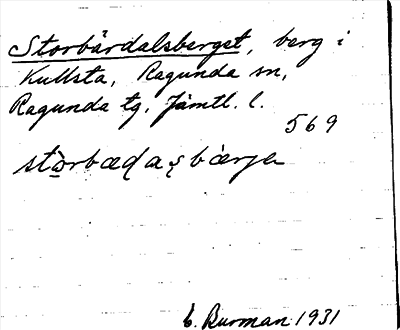 Storbårdalsberget, berg i
Kullsta, Ragunda sn,
Ragunda tg, Jämtl. l.
569
E. Burman 1931